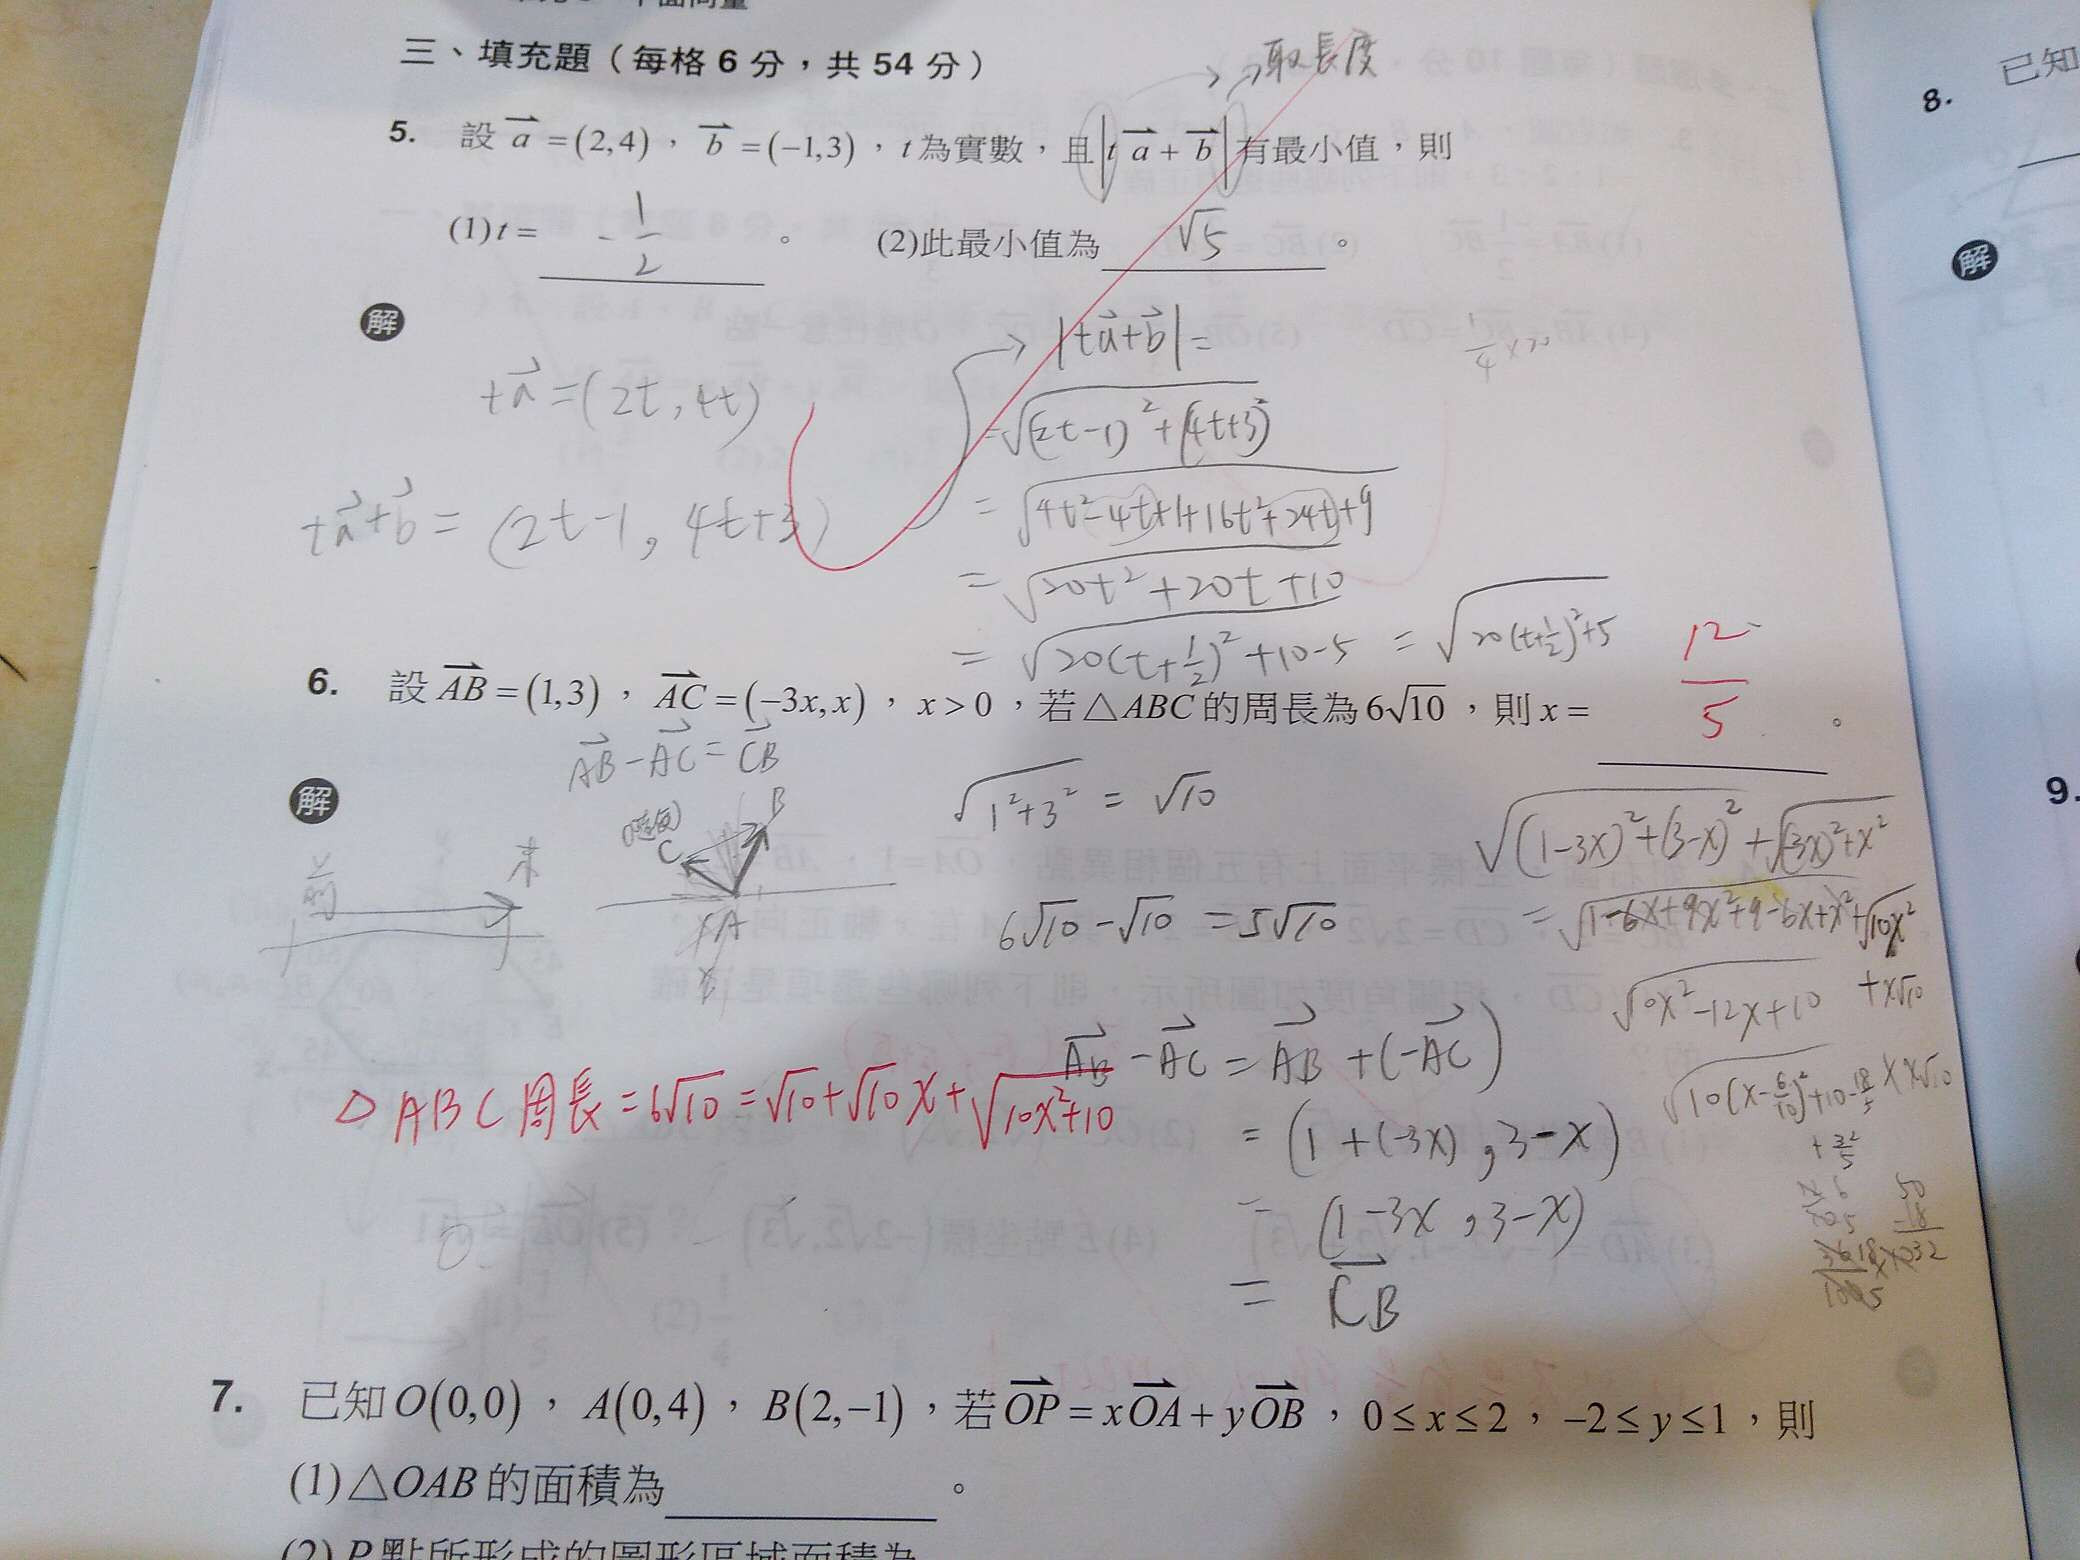 三、填充題（每格 6 分，共 54 分）
取長度
5. 設 a⃗ = (2,4)，b⃗ = (−1,3)，t 為實數，且 |t a⃗ + b⃗| 有最小值，則
(1) t = -1/2 。 (2)此最小值為 √5 。
解
ta⃗ = (2t, 4t)
ta⃗+b⃗ = (2t-1, 4t+3)
|ta⃗+b⃗| =
= √((2t-1)²+(4t+3)²)
= √(4t²-4t+1+16t²+24t+9)
= √(20t²+20t+10)
= √(20(t+1/2)²+10-5) = √(20(t+1/2)²+5)
6. 設 AB⃗ = (1,3)，AC⃗ = (−3x, x)，x > 0，若 △ABC 的周長為 6√10，則 x = 12/5 。
AB⃗ - AC⃗ = CB⃗
解
B
C
A
末
√(1²+3²) = √10
6√10 - √10 = 5√10
√((1-3x)²+(3-x)²) + √((3x)²+x²)
= √(1-6x+9x²+9-6x+x²) + √(10x²)
√(10x²-12x+10) + x√10
AB⃗ - AC⃗ = AB⃗ + (-AC⃗)
= (1+(-3x), 3-x)
= (1-3x, 3-x)
= CB⃗
△ABC周長 = 6√10 = √10+√10x+√(10x²+10)
7. 已知 O(0,0)，A(0,4)，B(2,−1)，若 OP⃗ = xOA⃗ + yOB⃗，0 ≤ x ≤ 2，−2 ≤ y ≤ 1，則
(1)△OAB 的面積為 。
(2) P 點所形成的圖形區域面積為
8. 已知
解
9.